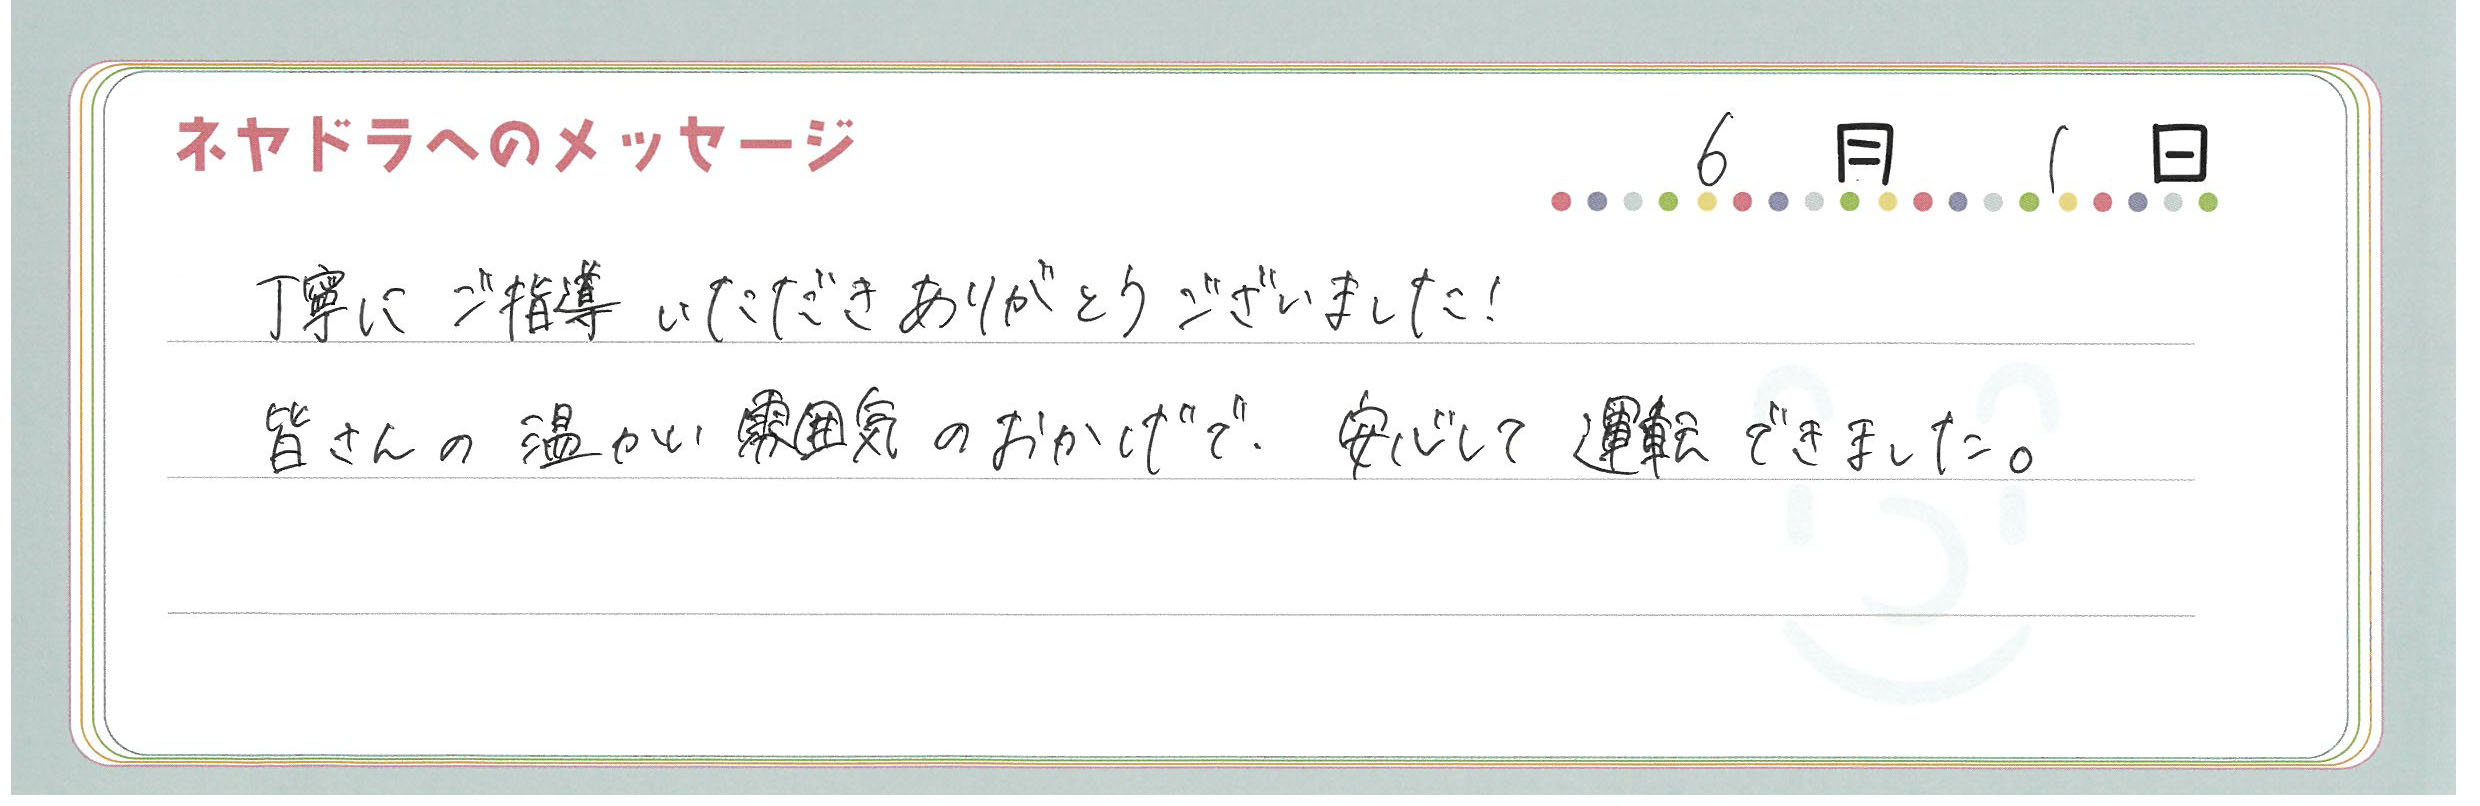 ネヤドラへのメッセージ
6月1日
丁寧にご指導いただきありがとうございました!
皆さんの温かい雰囲気のおかげで、安心して運転できました。